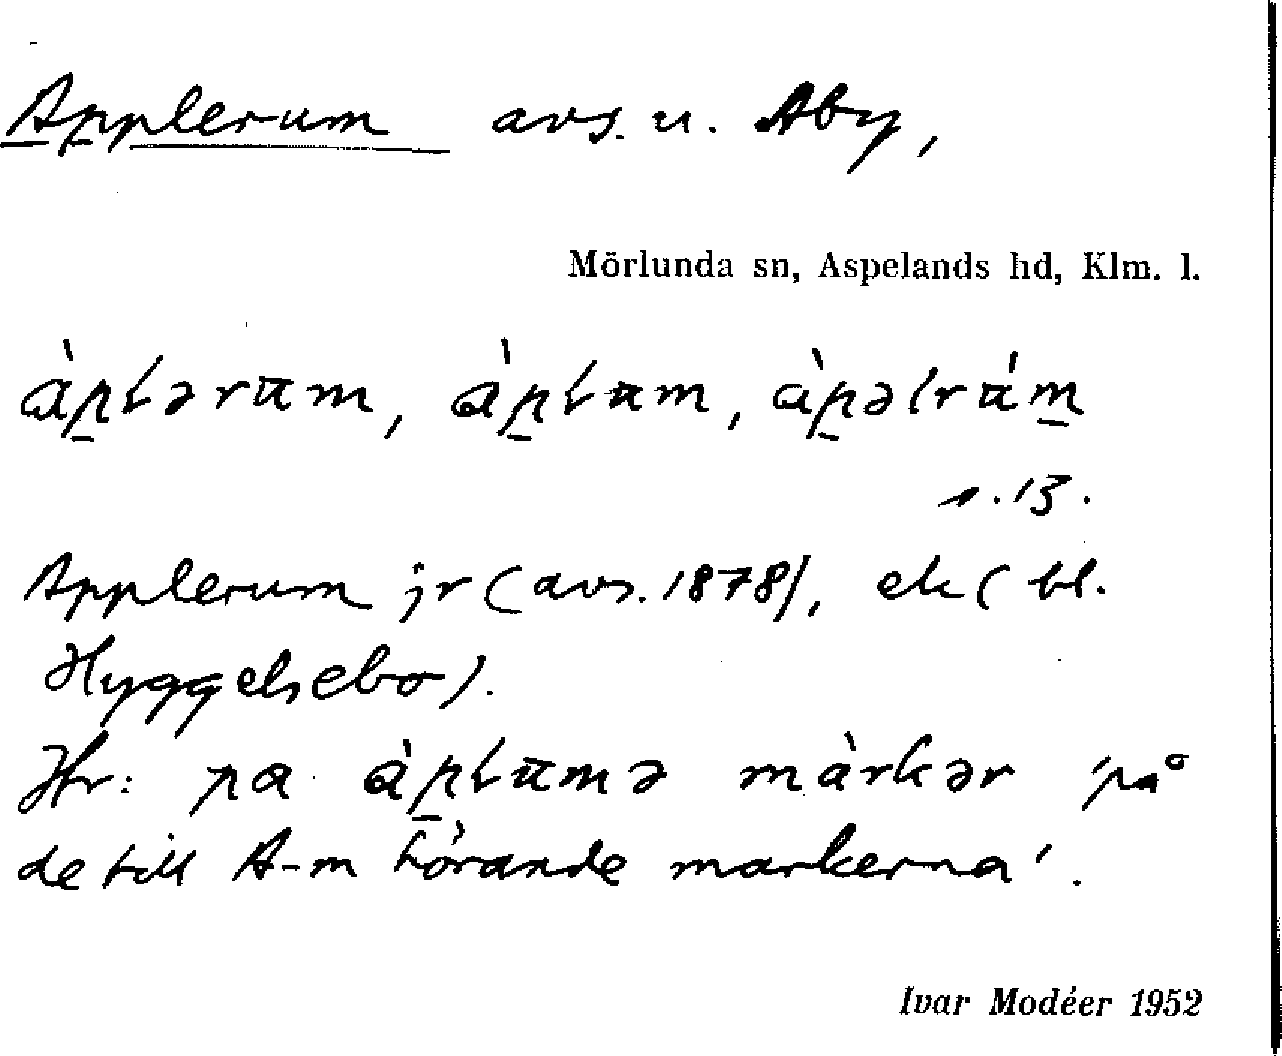 Applerum avs. u. Åby,
Mörlunda sn, Aspelands hd, Klm. l.
àp̱lərūm, àp̱lūm, àp̱əlrúm̱
s. 13.
Applerum jr (avs. 1878), ek (bl.
Hyggelsebo).
Hr: pa àp̱lūmə màrkər 'på
de till A-m hörande markerna'.
Ivar Modéer 1952